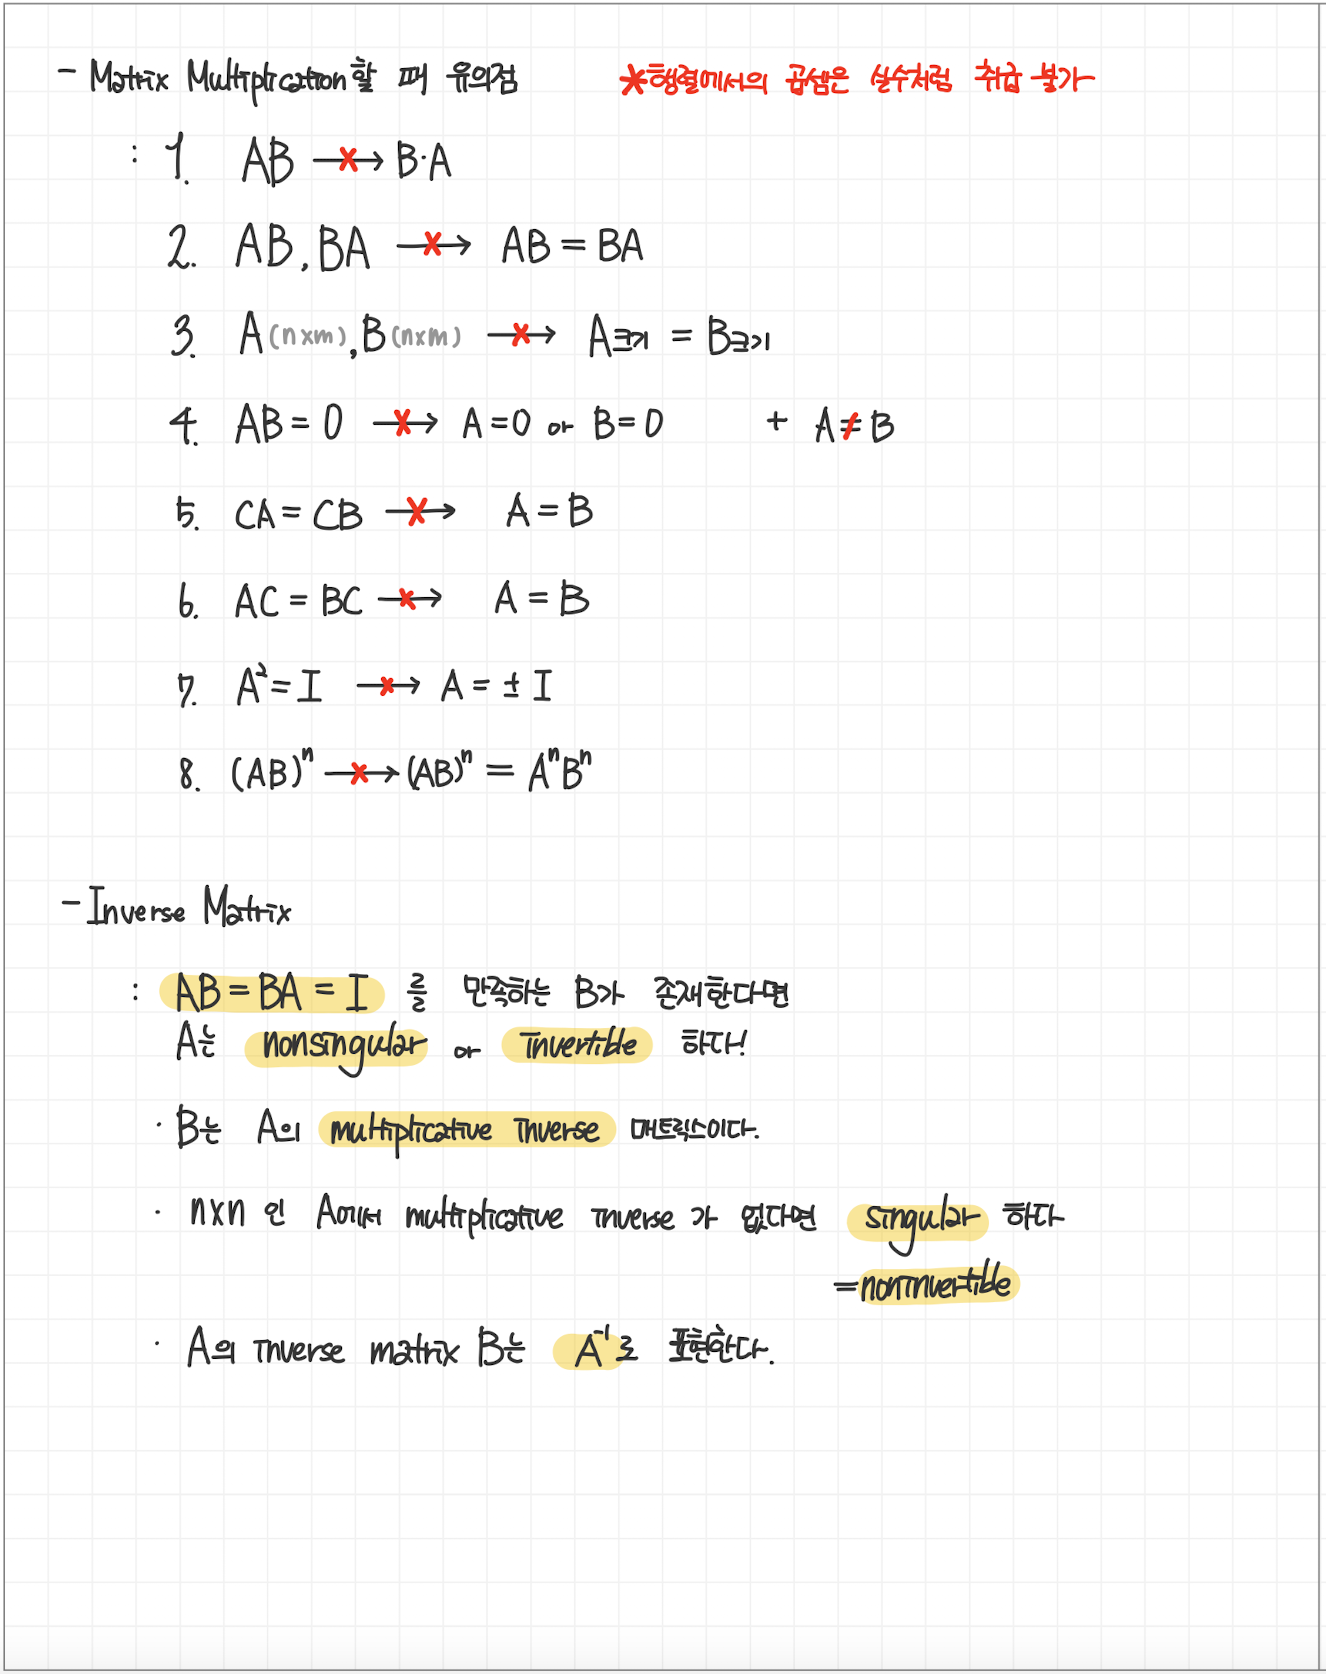 - Matrix Multiplication할 때 유의점 *행렬에서의 곱셈은 실수처럼 취급 불가
: 1. AB → B·A
2. AB, BA → AB = BA
3. A(n×m), B(n×m) → A크기 = B크기
4. AB = 0 → A = 0 or B = 0 + A ≠ B
5. CA = CB → A = B
6. AC = BC → A = B
7. A² = I → A = ± I
8. (AB)ⁿ → (AB)ⁿ = AⁿBⁿ
- Inverse Matrix
: AB = BA = I 를 만족하는 B가 존재한다면
A는 nonsingular or invertible 하다!
· B는 A의 multiplicative inverse 매트릭스이다.
· n×n 인 A에서 multiplicative inverse 가 없다면 singular 하다
= noninvertible
· A의 inverse matrix B는 A⁻¹로 표현한다.